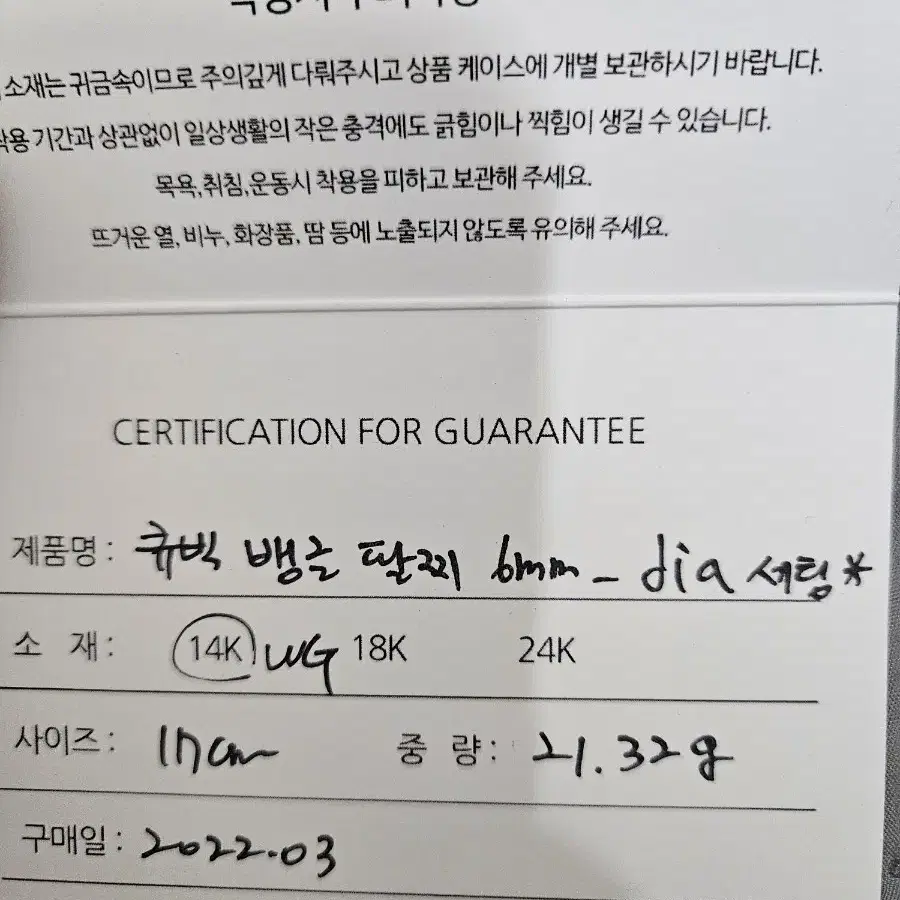 소재는 귀금속이므로 주의깊게 다뤄주시고 상품 케이스에 개별 보관하시기 바랍니다.
착용 기간과 상관없이 일상생활의 작은 충격에도 긁힘이나 찍힘이 생길 수 있습니다.
목욕,취침,운동시 착용을 피하고 보관해 주세요.
뜨거운 열, 비누, 화장품, 땀 등에 노출되지 않도록 유의해 주세요.
CERTIFICATION FOR GUARANTEE
제품명 : 큐빅 뱅글 팔찌 6mm - dia 세팅*
소 재 : 14K WG 18K 24K
사이즈 : 17cm 중 량 : 21.32g
구매일 : 2022.03